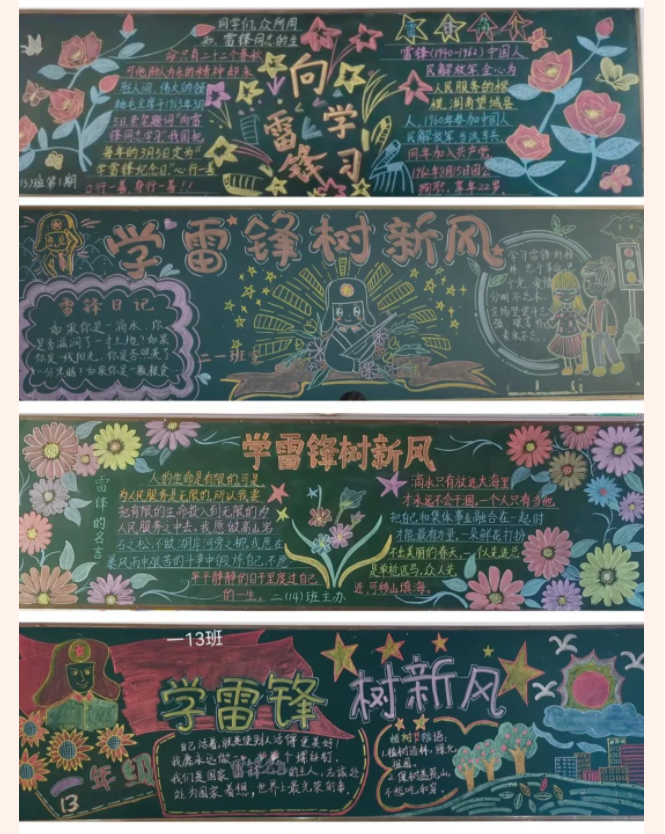 同学们,众所周
知,雷锋同志的生
命只有二十二个春秋
可他助人为乐的精神却永
驻人间,伟大的领
袖毛主席于1963年3月
5日亲笔题词"向雷
锋同志学习"我国把
每年的3月5日定为"
学雷锋纪念日."心行一善
口行一善,身行一善!!
班第1期
向雷锋学习
雷锋(1940-1962)中国人
民解放军全心为
人民服务的楷
模,湖南望城县
人,1960年参加中国人
民解放军
同年加入共产党,
1962年8月15日因公
殉职,享年22岁.
学雷锋树新风
雷锋日记
如果你是一滴水,你
是否滋润了一寸土地?如果
你是一线阳光,你是否照亮了
一分黑暗?如果你是一颗粮食
二一班
学雷锋树新风
雷锋的名言
人的生命是有限的可是
为人民服务是无限的,所以我要
把有限的生命投入到无限的为
人民服务之中去,我愿做高山岩
石之松,不做湖岸河旁之柳,我愿在
暴风雨中艰苦的斗争中锻炼自己,不愿
平平静静的日子里度过自己
的一生。二(14)班主办
一滴水只有放进大海里
才永远不会干涸,一个人只有当他
把自己和集体事业融合在一起时
才能最有力量,一朵鲜花打扮
不出美丽的春天,一
是单枪匹马,众人先
进,可移山填海。
一13班
学雷锋 树新风
自己活着,就是使别人活得更美好!
我愿永远做
我们是国家
处处为国家着想,
植树节标语:
1.植树造林,绿化
祖国。
13
年级